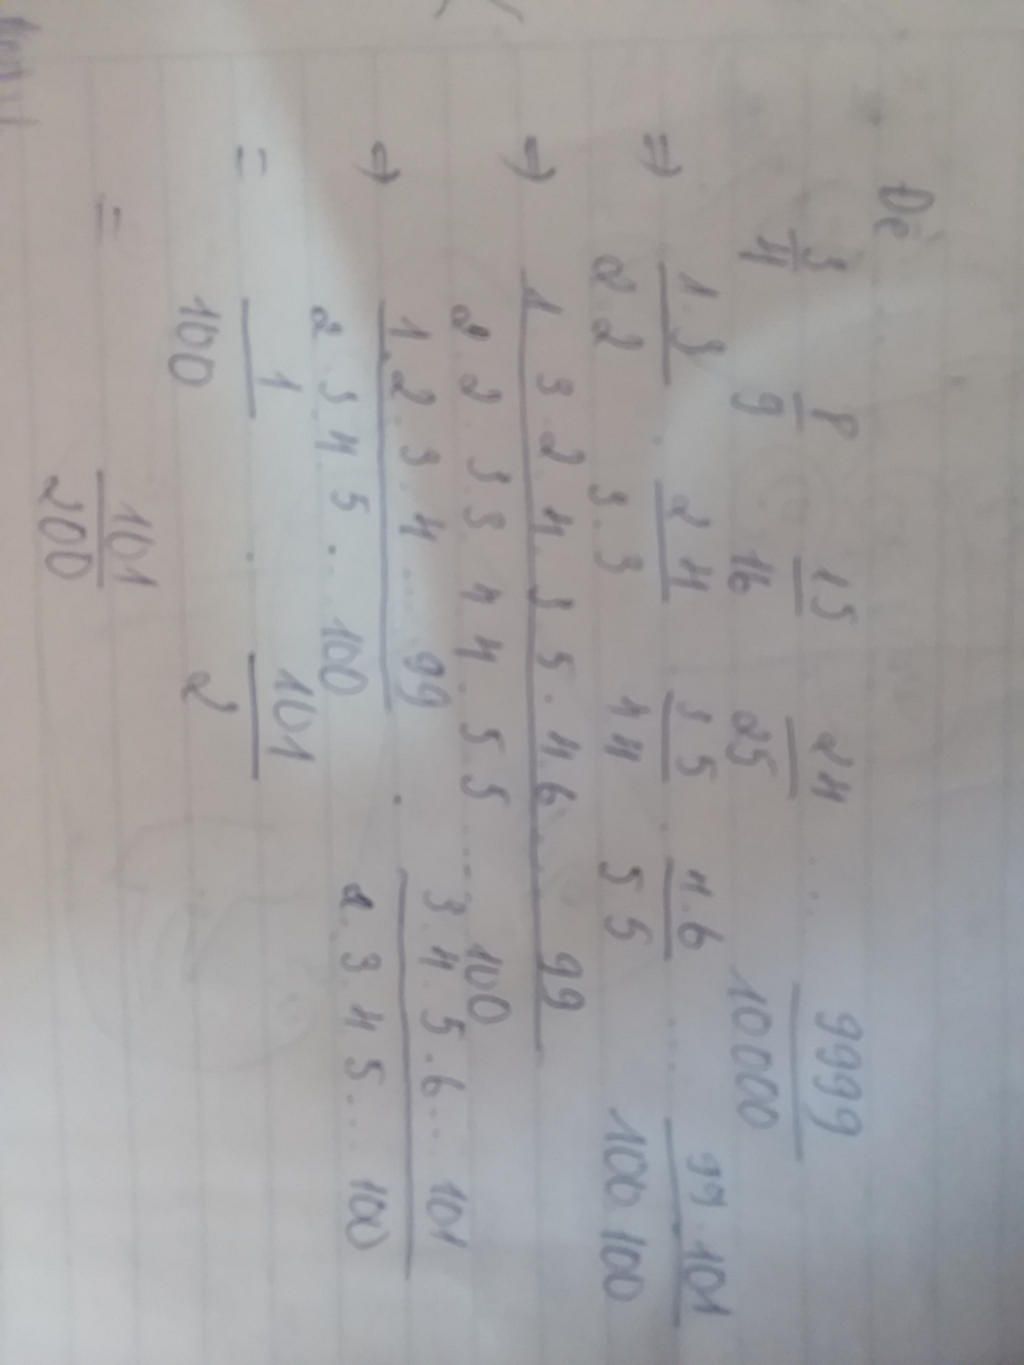 Đề
3/4 8/9 15/16 24/25 ... 9999/10000
⇒ 1.3/2 2 . 2 4/3.3 3 5/4 4 . 4.6/5 5 ... 99.101/100 100
⇒ 1 3.2 4.3 5.4.6...99/2 2.3.3 4 4.5 5...100
⇒ 1.2.3.4...99/2 3 4 5...100 . 3.4.5.6...101/2.3.4 5...100
= 1/100 . 101/2
= 101/200